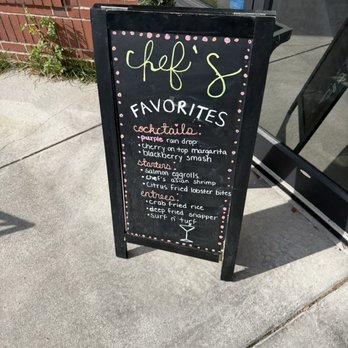 chef's
FAVORITES
cocktails:
• purple rain drop
• cherry on top margarita
• blackberry smash
starters:
• salmon eggrolls
• chef's asian shrimp
• citrus fried lobster bites
entrees:
• crab fried rice
• deep fried snapper
• surf n' turf